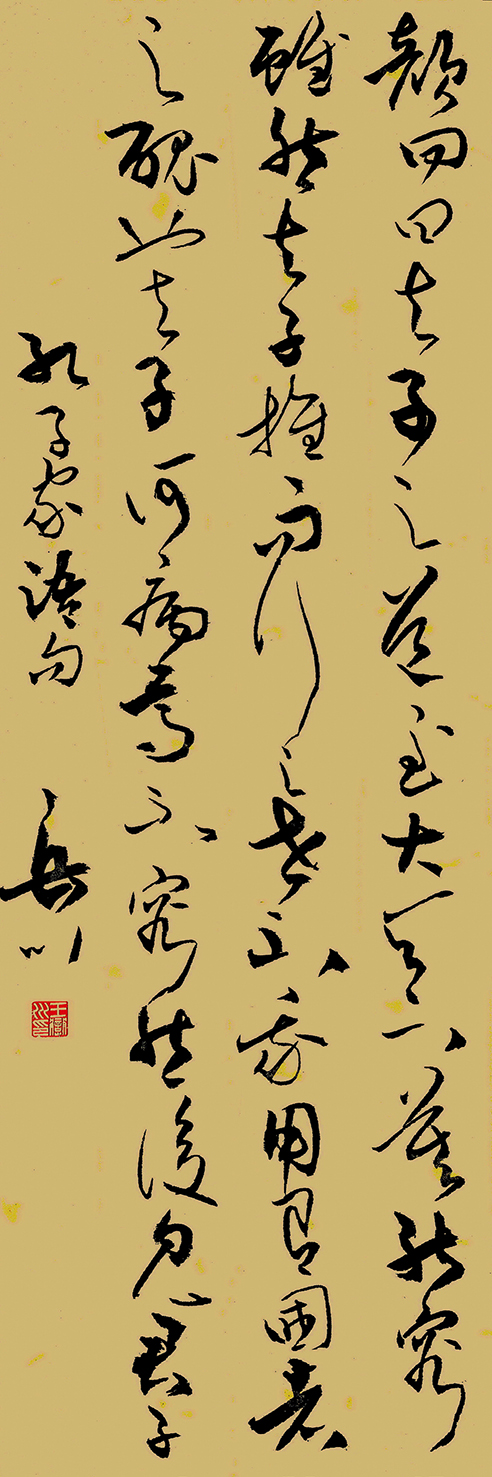 顏回曰夫子之道至大天下莫能容
雖然夫子推而行之世不我用有國者
之醜也夫子何病焉不容然後見君子
孔子家語句 岳川
王嶽川印